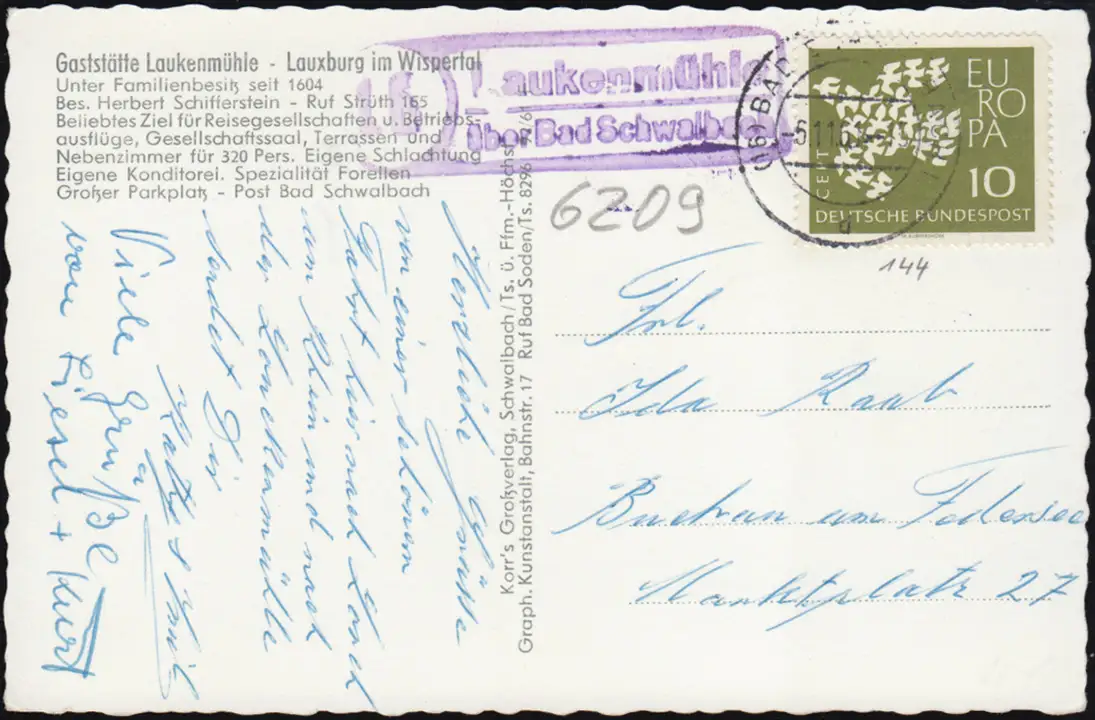 Gaststätte Laukenmühle - Lauxburg im Wispertal
Unter Familienbesitz seit 1604
Bes. Herbert Schifferstein - Ruf Strüth 165
Beliebtes Ziel für Reisegesellschaften u. Betriebs-
ausflüge, Gesellschaftssaal, Terrassen und
Nebenzimmer für 320 Pers. Eigene Schlachtung
Eigene Konditorei. Spezialität Forellen
Großer Parkplatz - Post Bad Schwalbach
(16)
Laukenmühle
über Bad Schwalbach
BAD
EUROPA
CEPT
10
DEUTSCHE BUNDESPOST
6209
144
Herzliche Grüsse
von einer schönen
Fahrt hier nach Lorch
am Rhein und nach
der Lauckenmühle
sendet Dir
Viele Grüße
von Liesel + Kurt
Korr's Großverlag, Schwalbach/Ts. ü. Ffm.-Höchst
Graph. Kunstanstalt, Bahnstr. 17 Ruf Bad Soden/Ts. 8296
Frl.
Ida Raab
Buchau am Federsee
Marktplatz 27